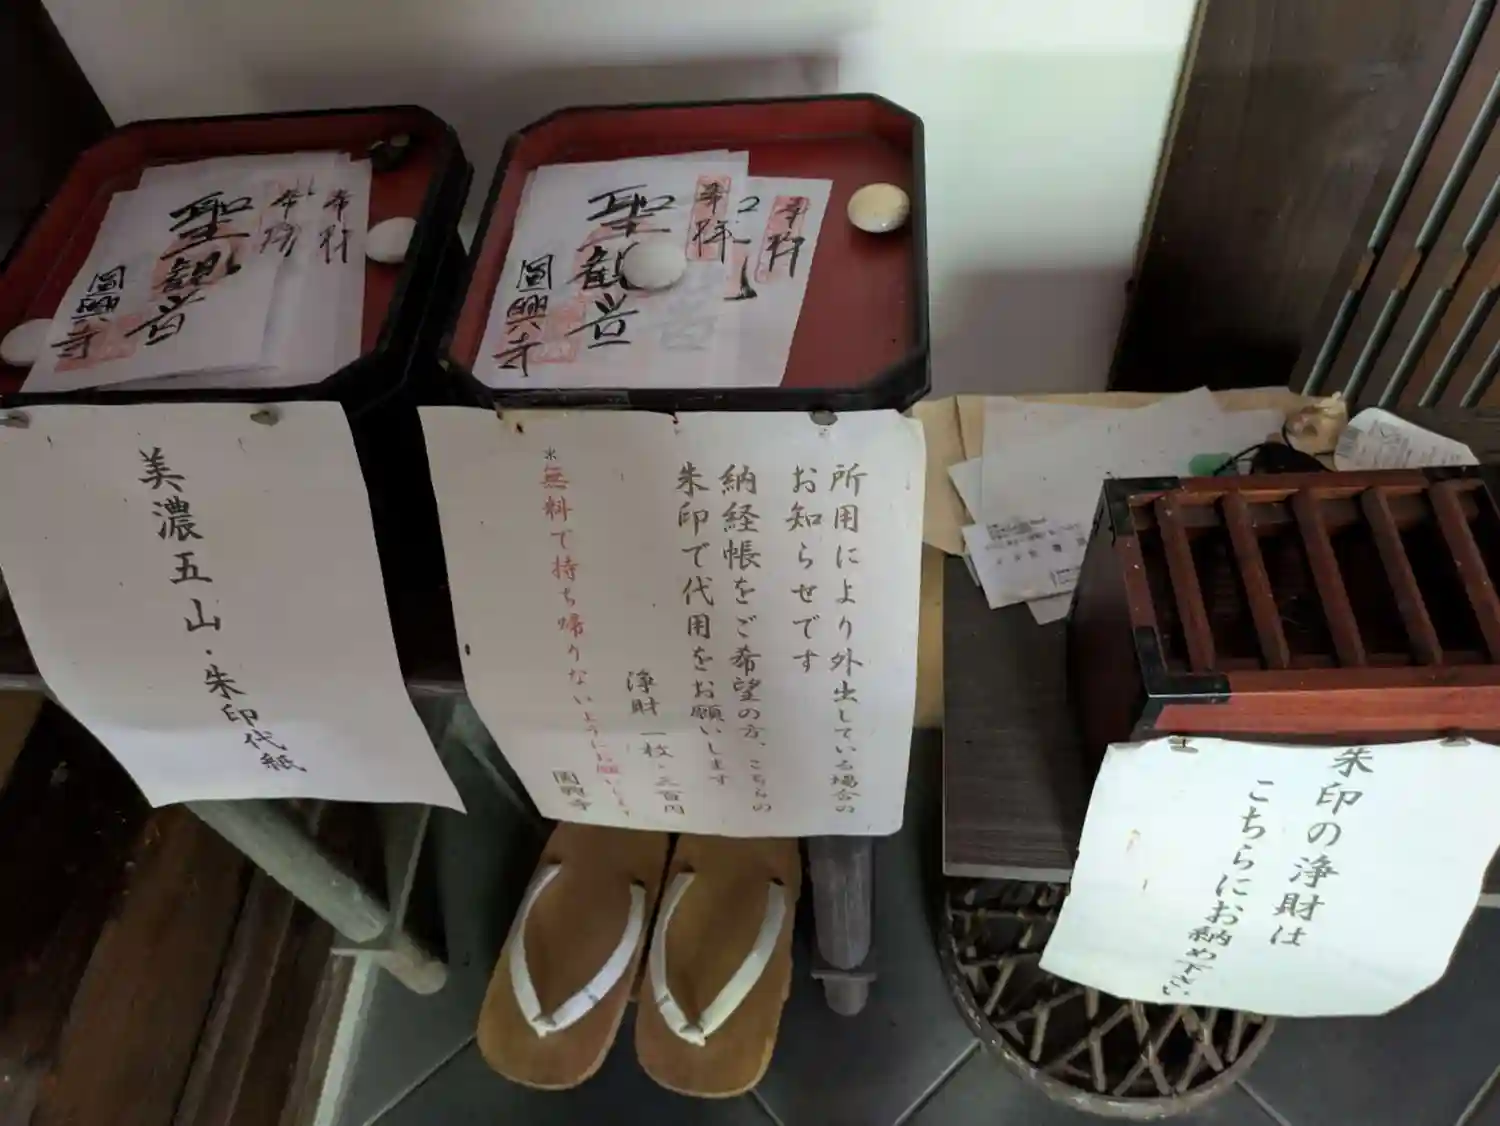 奉拝
奉拝
聖観音
圓興寺
奉拝
奉拝
聖観音
圓興寺
美濃五山・朱印代紙
所用により外出している場合の
お知らせです
納経帳をご希望の方、こちらの
朱印で代用をお願いします
浄財 一枚・三百円
※無料で持ち帰りないようにお願いします
圓興寺
朱印の浄財は
こちらにお納め下さい